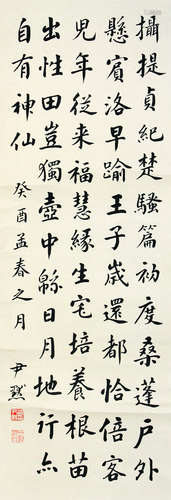 攝提貞紀楚騷篇初度桑蓬戶外
懸賓洛早踰王子歲還都恰倍客
兒年從来福慧緣生宅培養根苗
出性田豈獨壺中緜日月地行亦
自有神仙
癸酉孟春之月
尹默